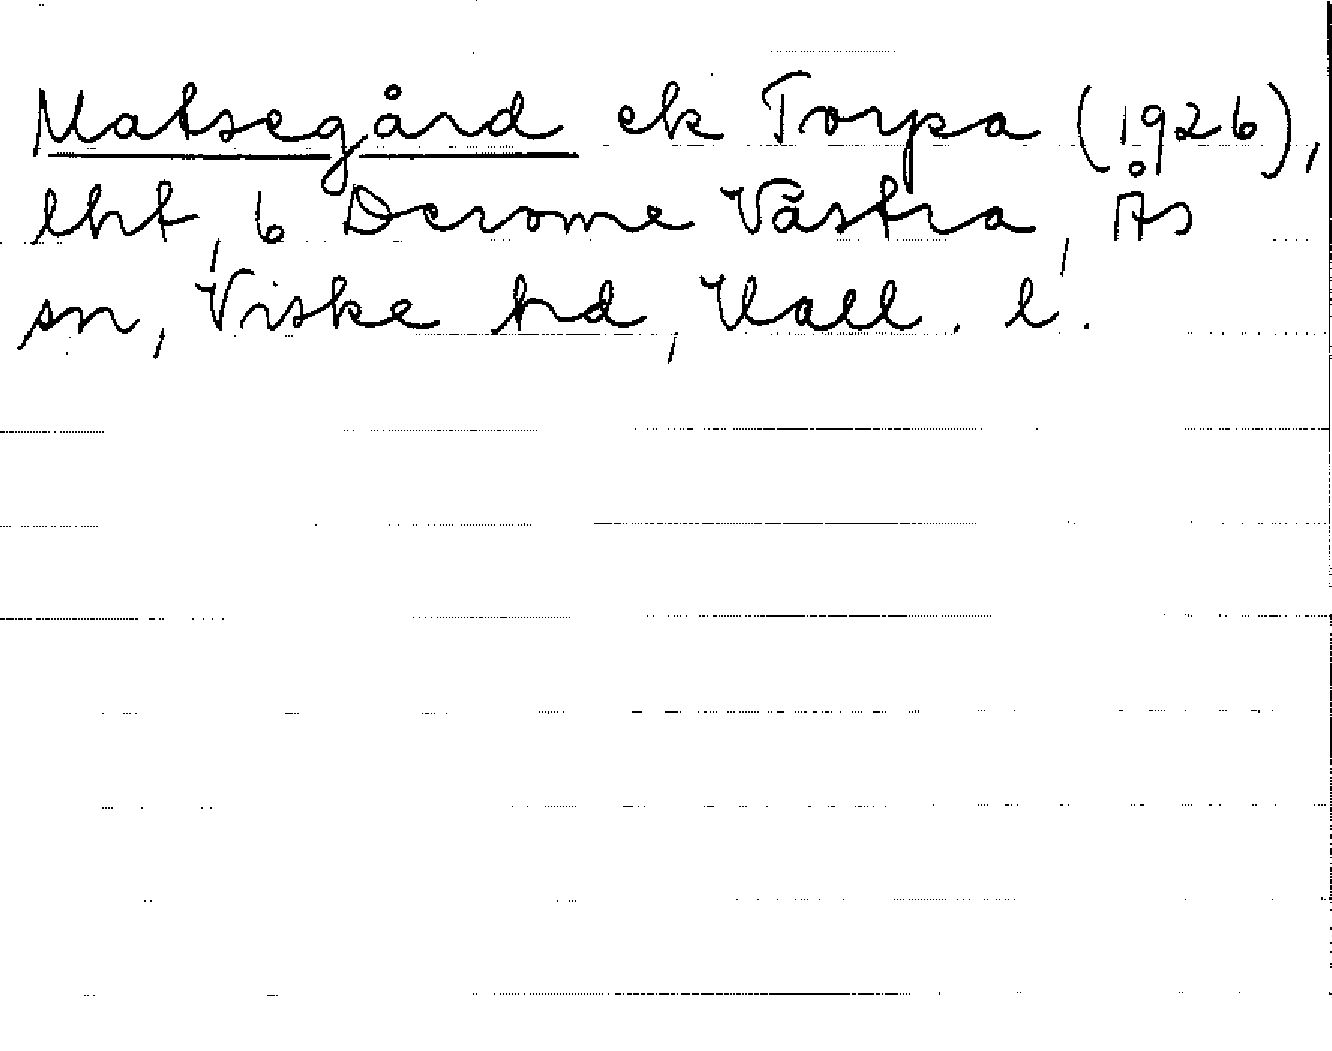 Matsegård ek Torpa (1926),
lht, 6 Derome Västra, Ås
sn, Viske hd, Hall. l.